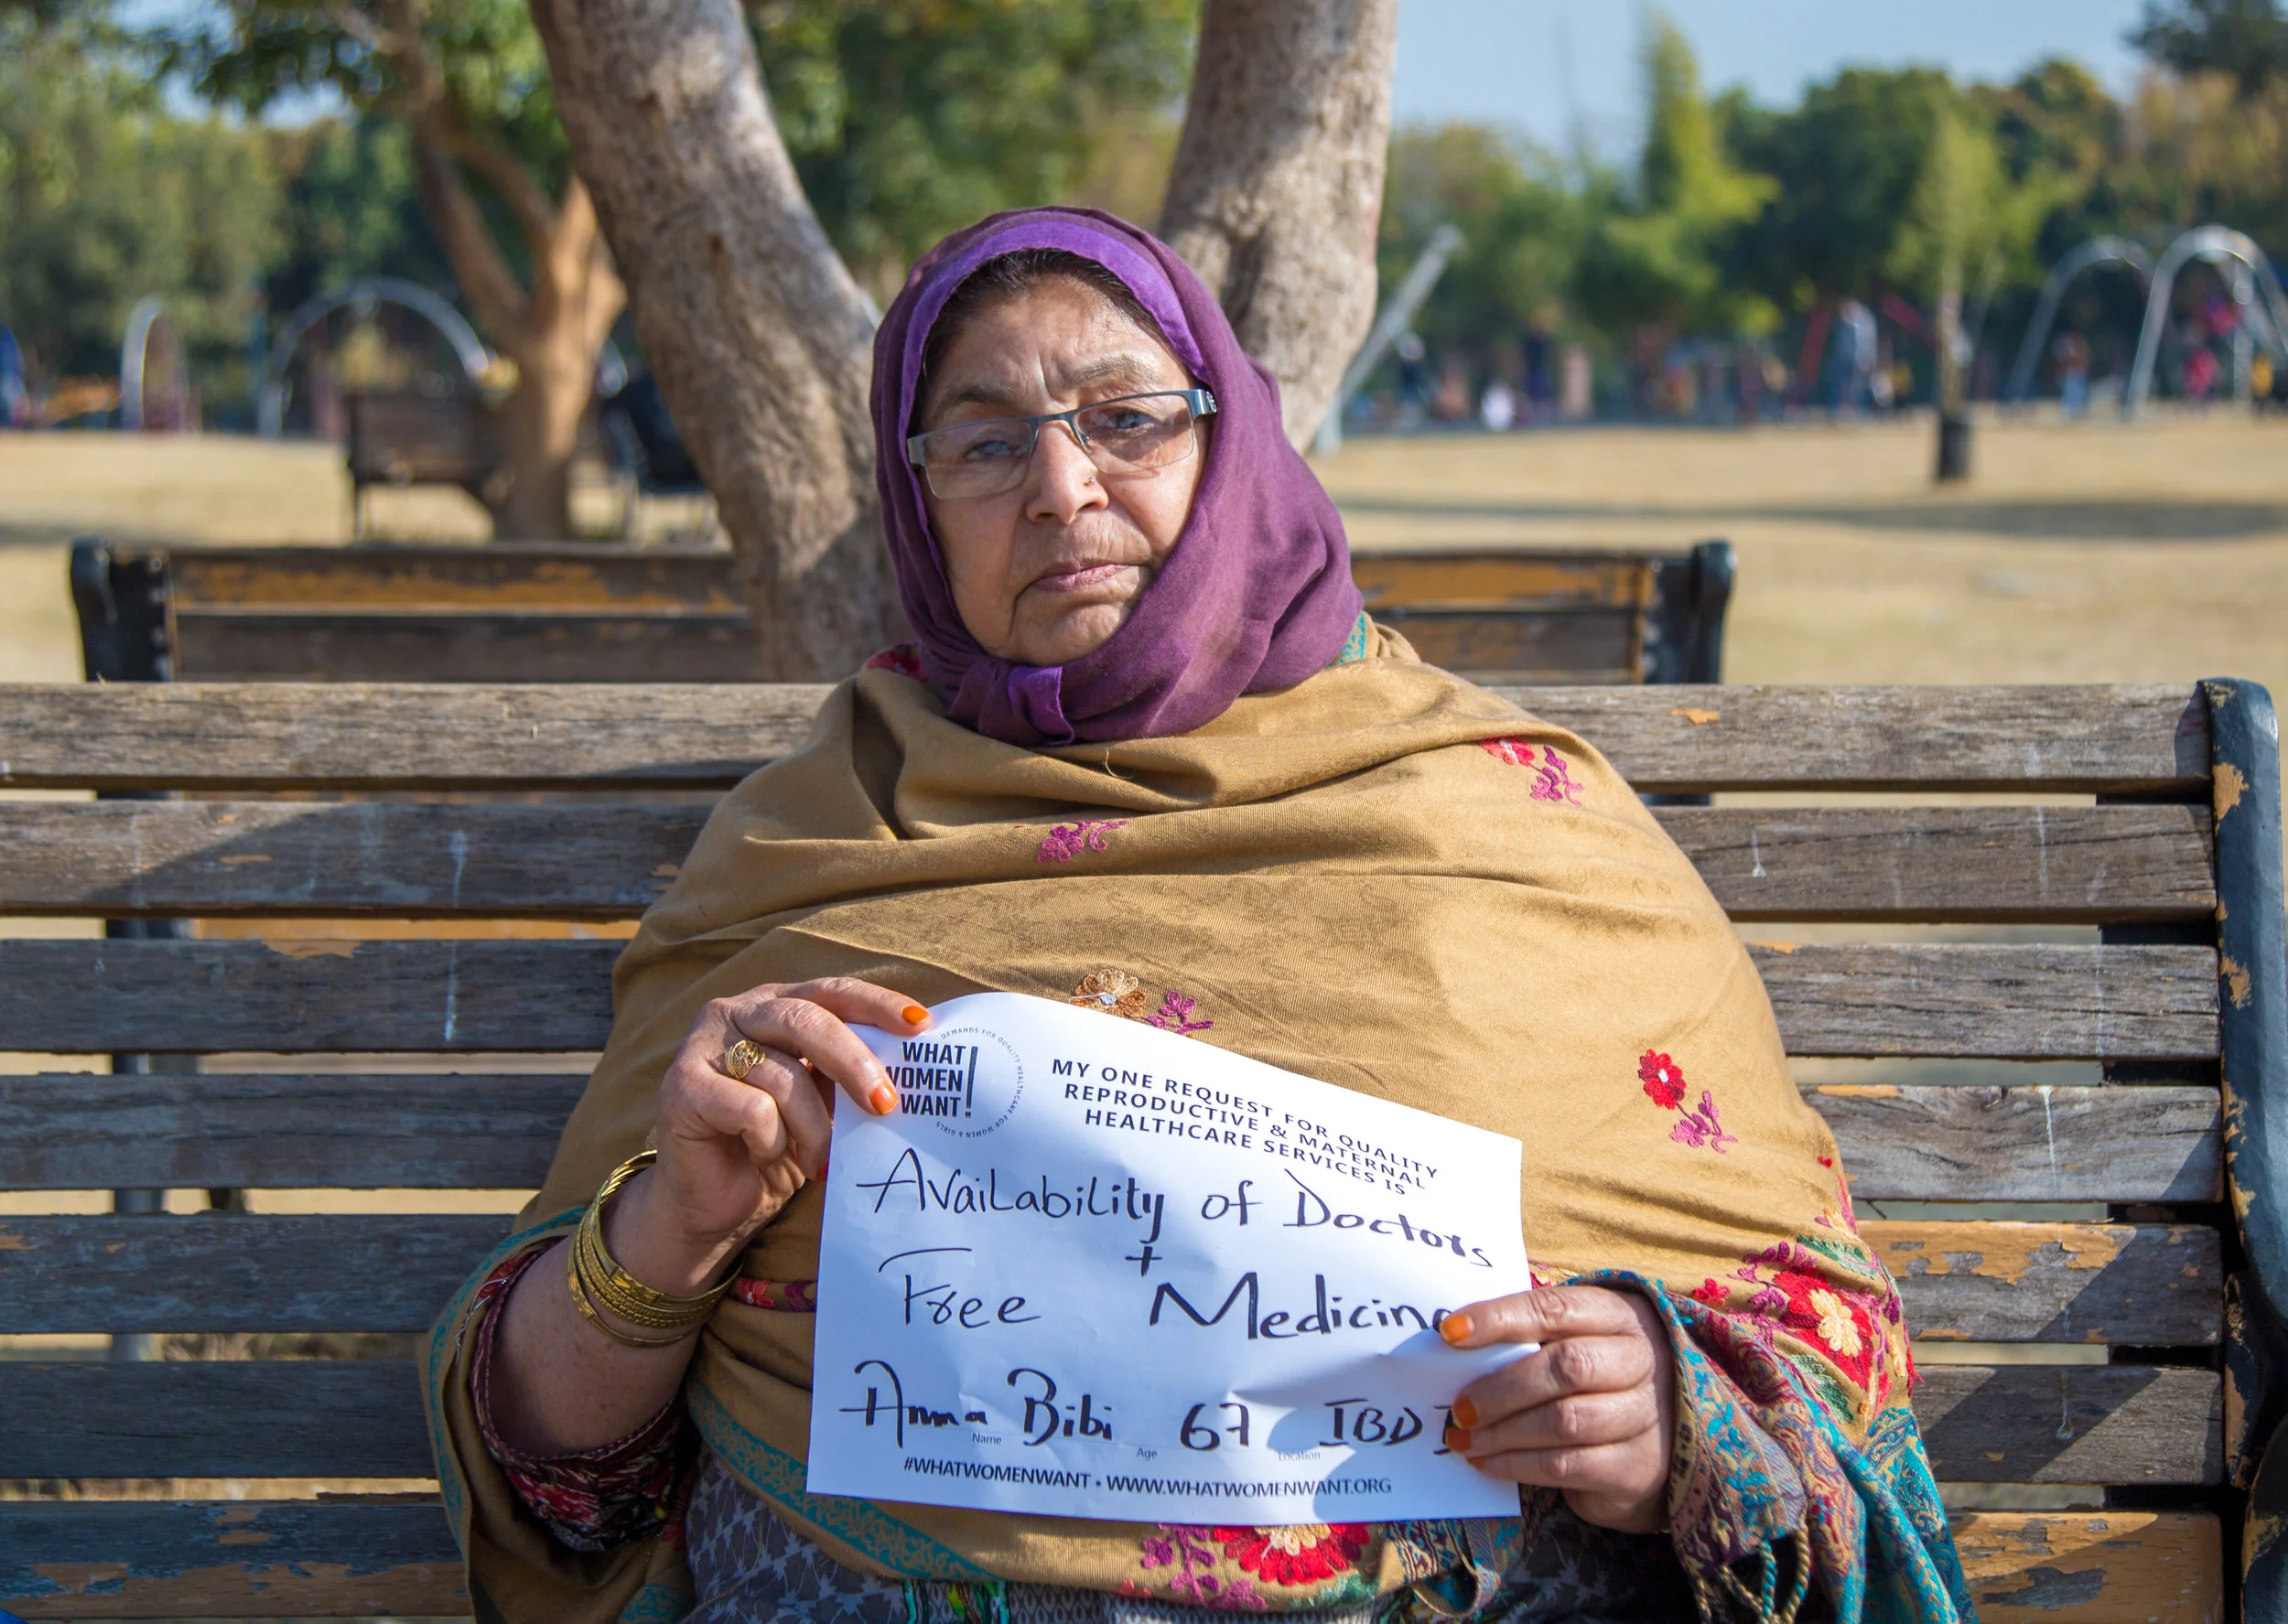 WHAT
WOMEN
WANT!
DEMANDS FOR QUALITY HEALTHCARE FOR WOMEN & GIRLS
MY ONE REQUEST FOR QUALITY
REPRODUCTIVE & MATERNAL
HEALTHCARE SERVICES IS
Availability of Doctors
+
Free Medicine
Anma Bibi 67 IBD
Name Age Location
#WHATWOMENWANT • WWW.WHATWOMENWANT.ORG